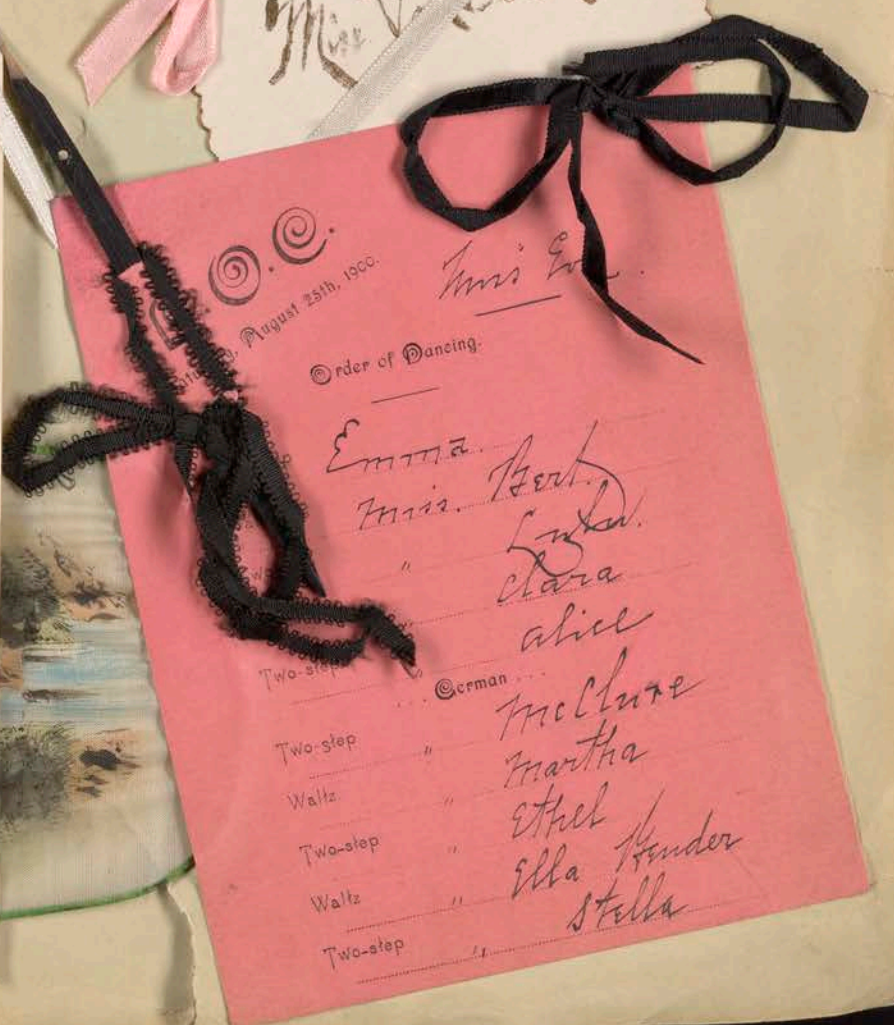 Miss
O. C.
August 25th, 1900.
Miss
Order of Dancing.
Emma.
Miss. Bert.
" Lulu.
Clara
Two-step " Alice
... German ...
Two-step " McClure
Waltz " Martha
Two-step " Ethel
Waltz " Ella Hender
Two-step " Stella